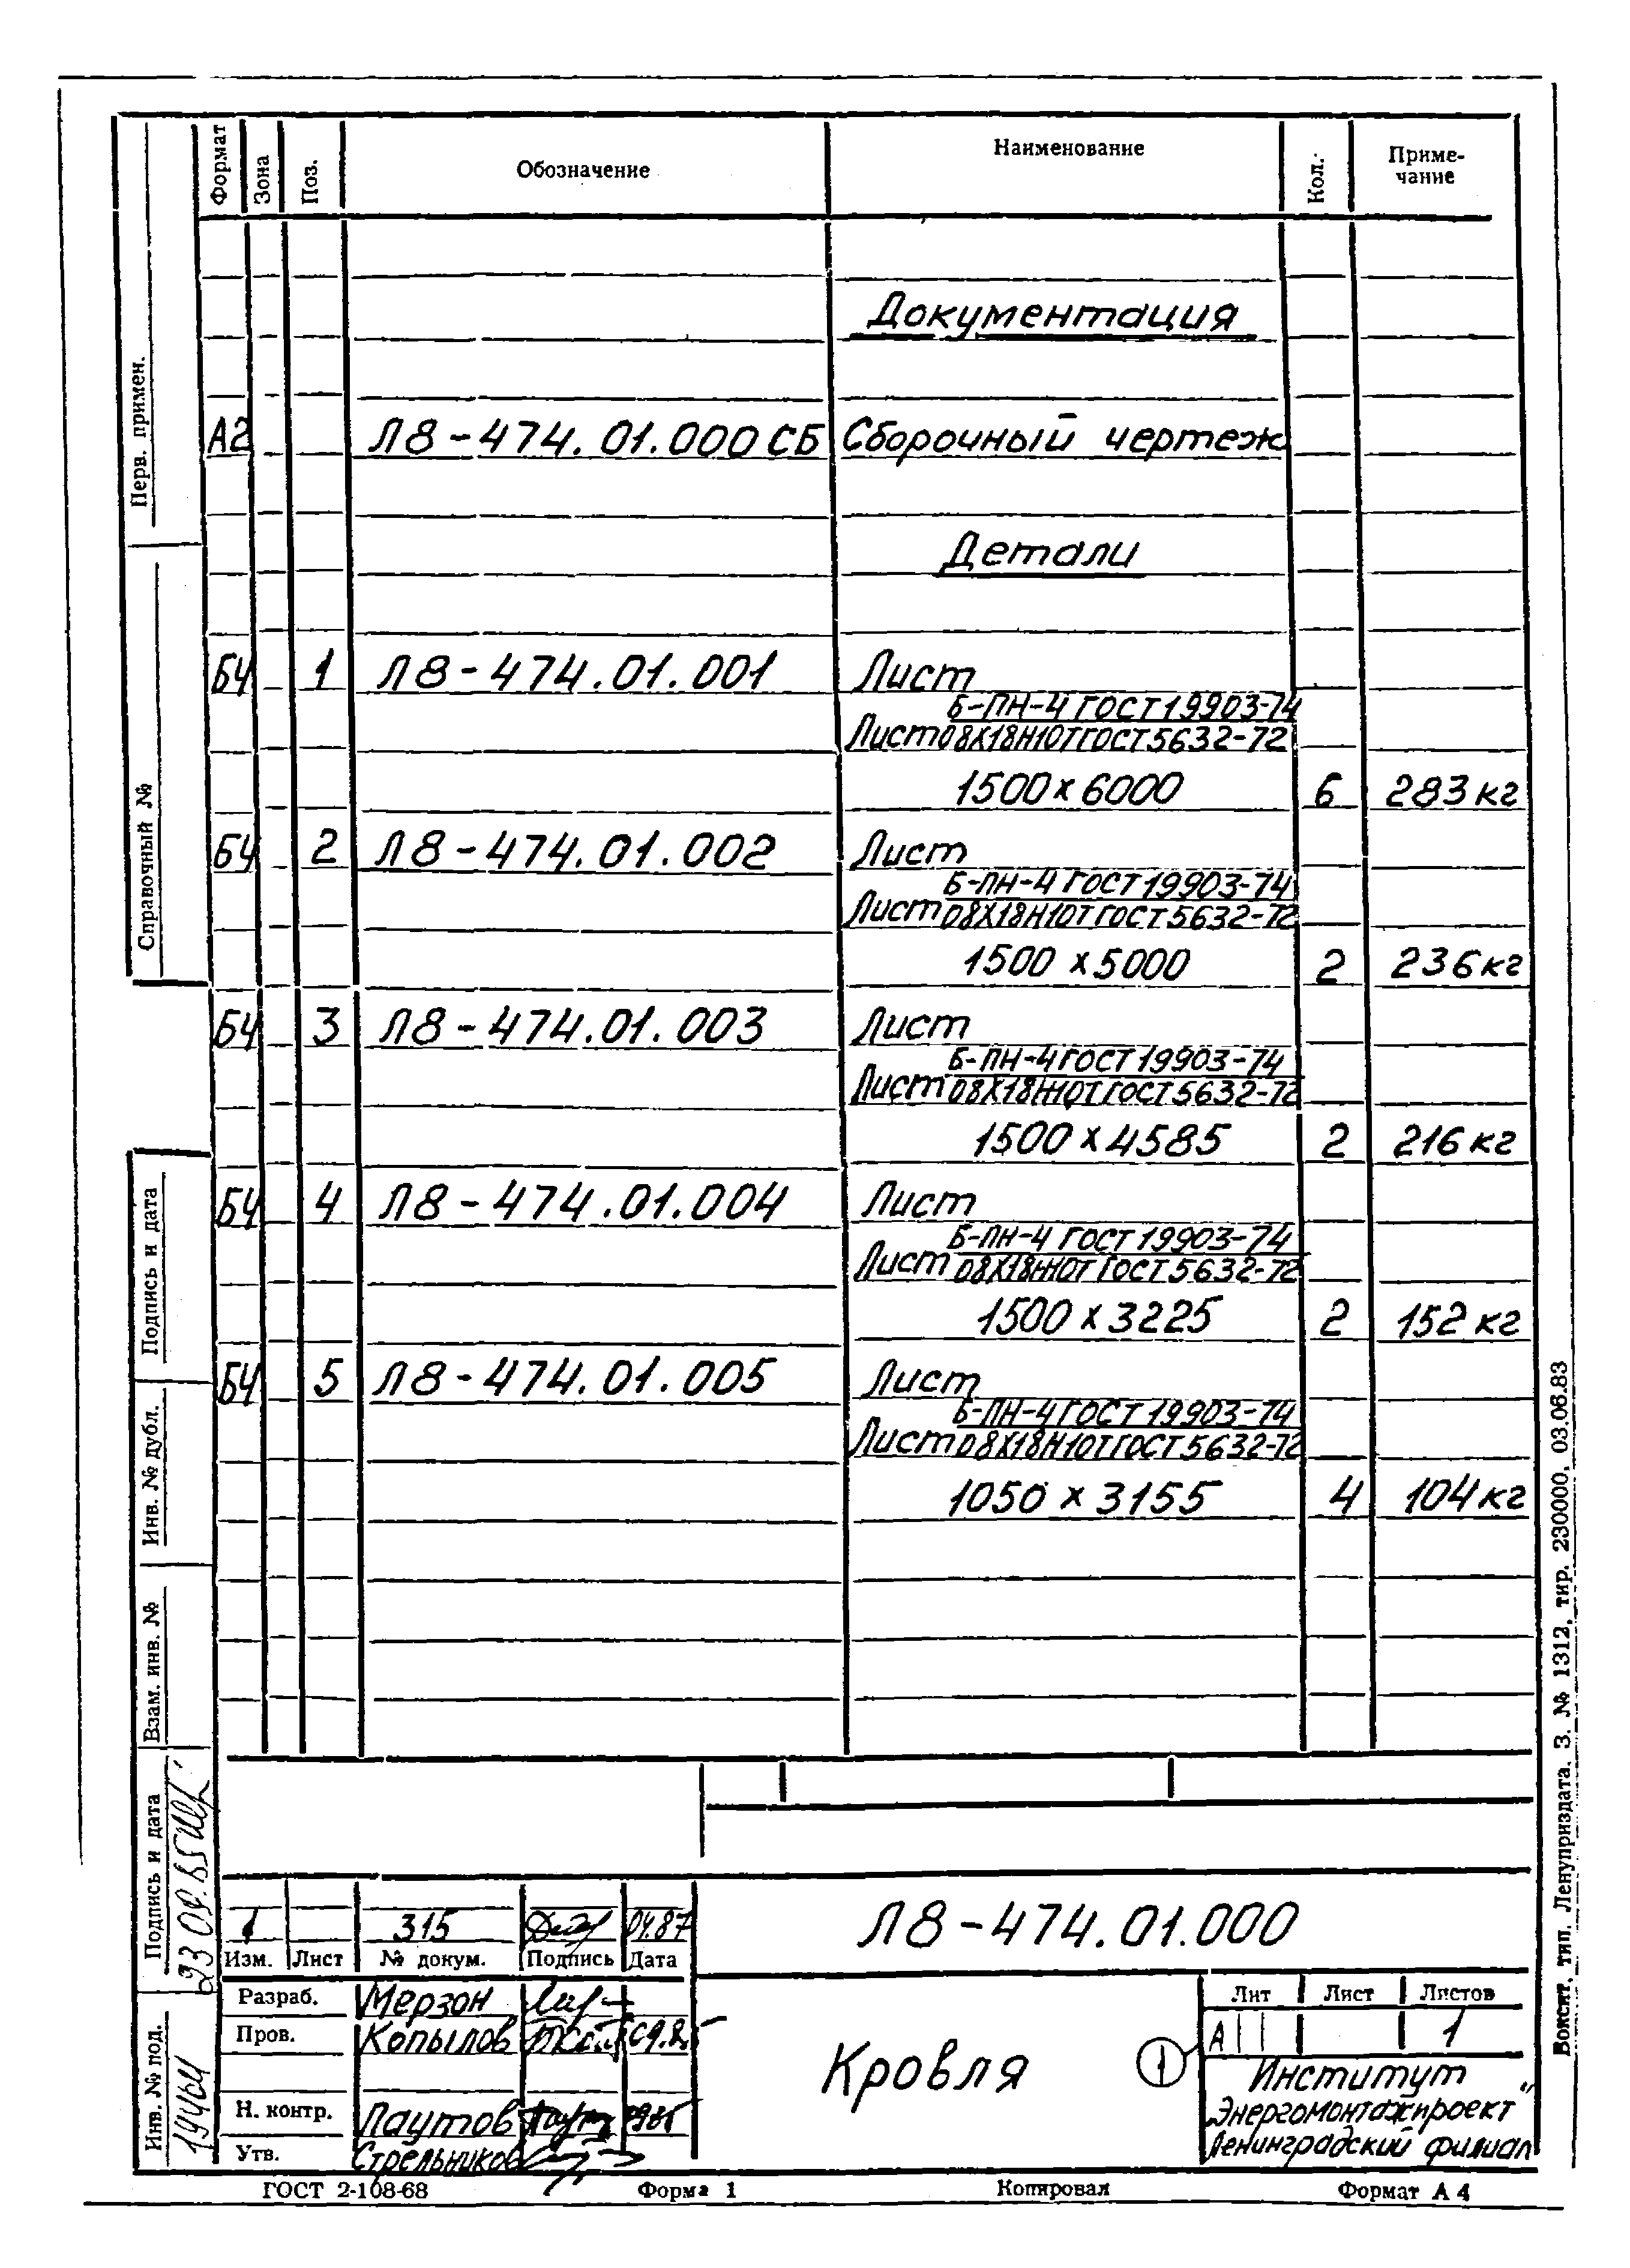 Формат
Зона
Поз.
Обозначение
Наименование
Кол.
Приме-
чание
Документация
А2 Л8-474.01.000СБ Сборочный чертеж
Детали
БЧ 1 Л8-474.01.001 Лист
Б-ПН-4 ГОСТ 19903-74
Лист 08Х18Н10Т ГОСТ 5632-72
1500х6000 6 283 кг
БЧ 2 Л8-474.01.002 Лист
Б-ПН-4 ГОСТ 19903-74
Лист 08Х18Н10Т ГОСТ 5632-72
1500х5000 2 236 кг
БЧ 3 Л8-474.01.003 Лист
Б-ПН-4 ГОСТ 19903-74
Лист 08Х18Н10Т ГОСТ 5632-72
1500х4585 2 216 кг
БЧ 4 Л8-474.01.004 Лист
Б-ПН-4 ГОСТ 19903-74
Лист 08Х18Н10Т ГОСТ 5632-72
1500х3225 2 152 кг
БЧ 5 Л8-474.01.005 Лист
Б-ПН-4 ГОСТ 19903-74
Лист 08Х18Н10Т ГОСТ 5632-72
1050х3155 4 104 кг
Перв. примен.
Справочный №
Подпись и дата
Инв. № дубл.
Взам. инв. №
Подпись и дата
Инв. № под.
19464
1 315 04.87
Изм. Лист № докум. Подпись Дата
Разраб. Мерзон
Пров. Копылов
Н. контр. Лаутов
Утв. Стрельников
Л8-474.01.000
Кровля
1
Лит Лист Листов
А 1
Институт
„Энергомонтажпроект"
Ленинградский филиал
ГОСТ 2-108-68 Форма 1 Копировал Формат А4
Боксит. тип. Ленуприздата. З. № 1312, тир. 230000, 03.06.83